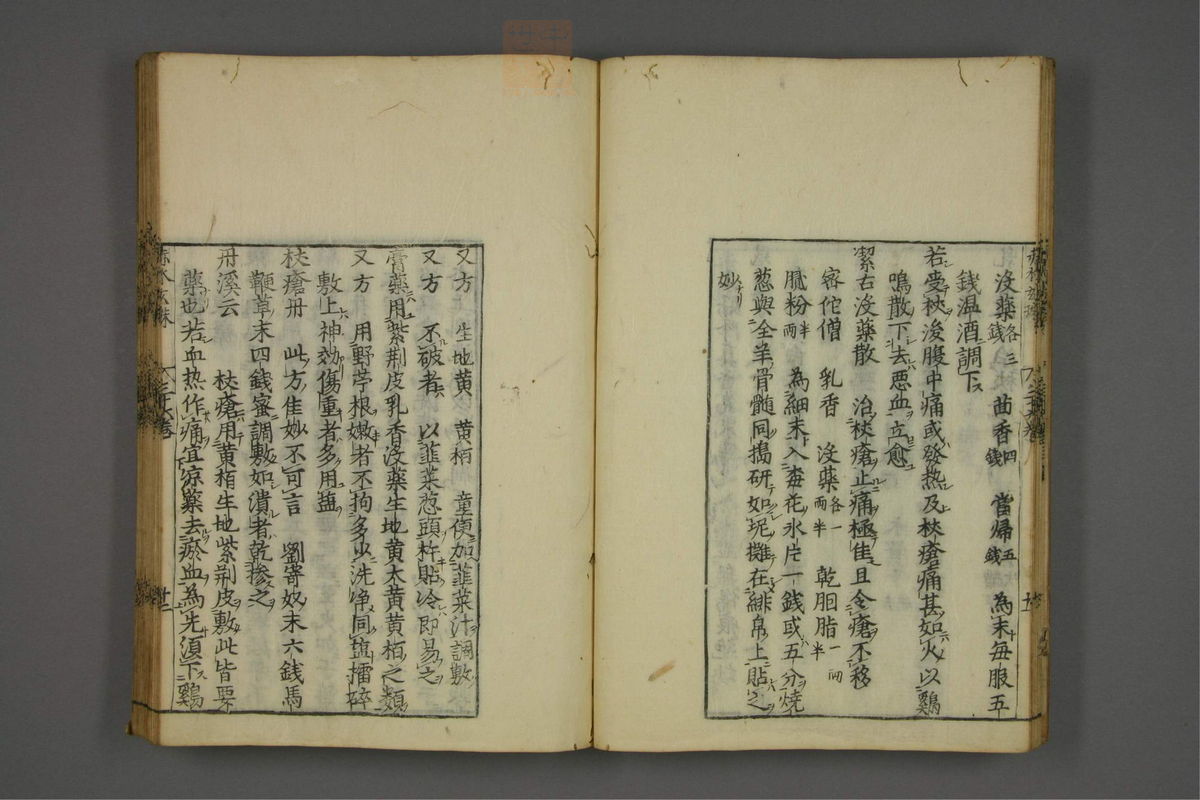 沒藥各三錢　茴香四錢　當帰五錢　為末每服五
錢温酒調下
若受杖後腹中痛或發热及杖瘡痛甚如火以鷄
鳴散下去悪血立愈
潔古沒藥散　治杖瘡止痛極佳且令瘡不移
密佗僧　乳香　沒藥各一両半　乾胭脂一両半
膩粉半両　為細末入梅花氷片一錢或五分燒
葱與全羊骨髓同搗研如坭攤在緋帛上貼之
妙
又方　生地黄　黄栢　童便加韮菜汁調敷
又方　不破者　以韮菜葱頭杵貼冷即易之
膏藥用紫荆皮乳香沒藥生地黄大黄黄栢之類
又方　用野苧根嫩者不拘多少洗净同塩擂碎
敷上神効傷重者多用塩
杖瘡丹　此方佳妙不可言　劉寄奴末六錢馬
鞭草末四錢蜜調敷如潰者乾摻之
丹溪云　杖瘡用黄栢生地紫荆皮敷此皆要
藥也若血热作痛宜凉藥去瘀血為先湏下鷄